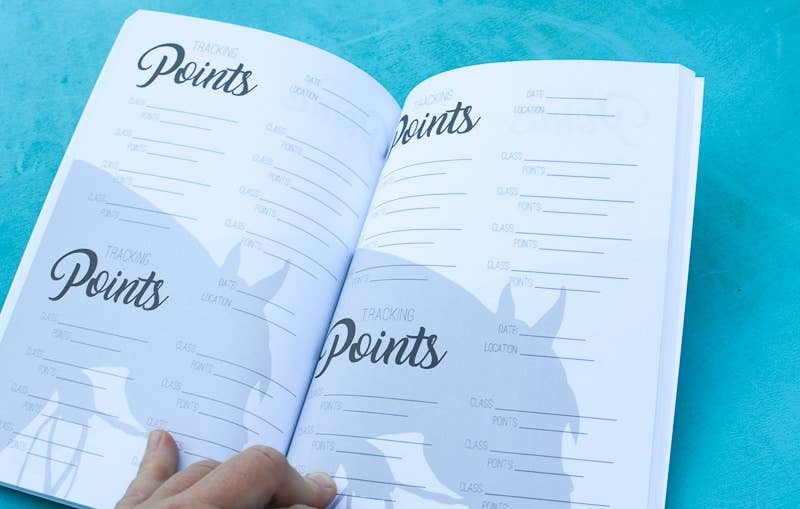 TRACKING
Points
DATE:
LOCATION:
CLASS:
POINTS:
CLASS:
POINTS:
CLASS:
POINTS:
CLASS:
POINTS:
CLASS:
POINTS:
CLASS:
POINTS:
CLASS:
POINTS:
TRACKING
Points
DATE:
LOCATION:
CLASS:
POINTS:
CLASS:
POINTS:
CLASS:
POINTS:
CLASS:
POINTS:
CLASS:
POINTS:
CLASS:
POINTS:
TRACKING
Points
DATE:
LOCATION:
CLASS:
POINTS:
CLASS:
POINTS:
CLASS:
POINTS:
CLASS:
POINTS:
TRACKING
Points
DATE:
LOCATION:
CLASS:
POINTS:
CLASS:
POINTS:
CLASS:
POINTS:
CLASS:
POINTS:
CLASS: